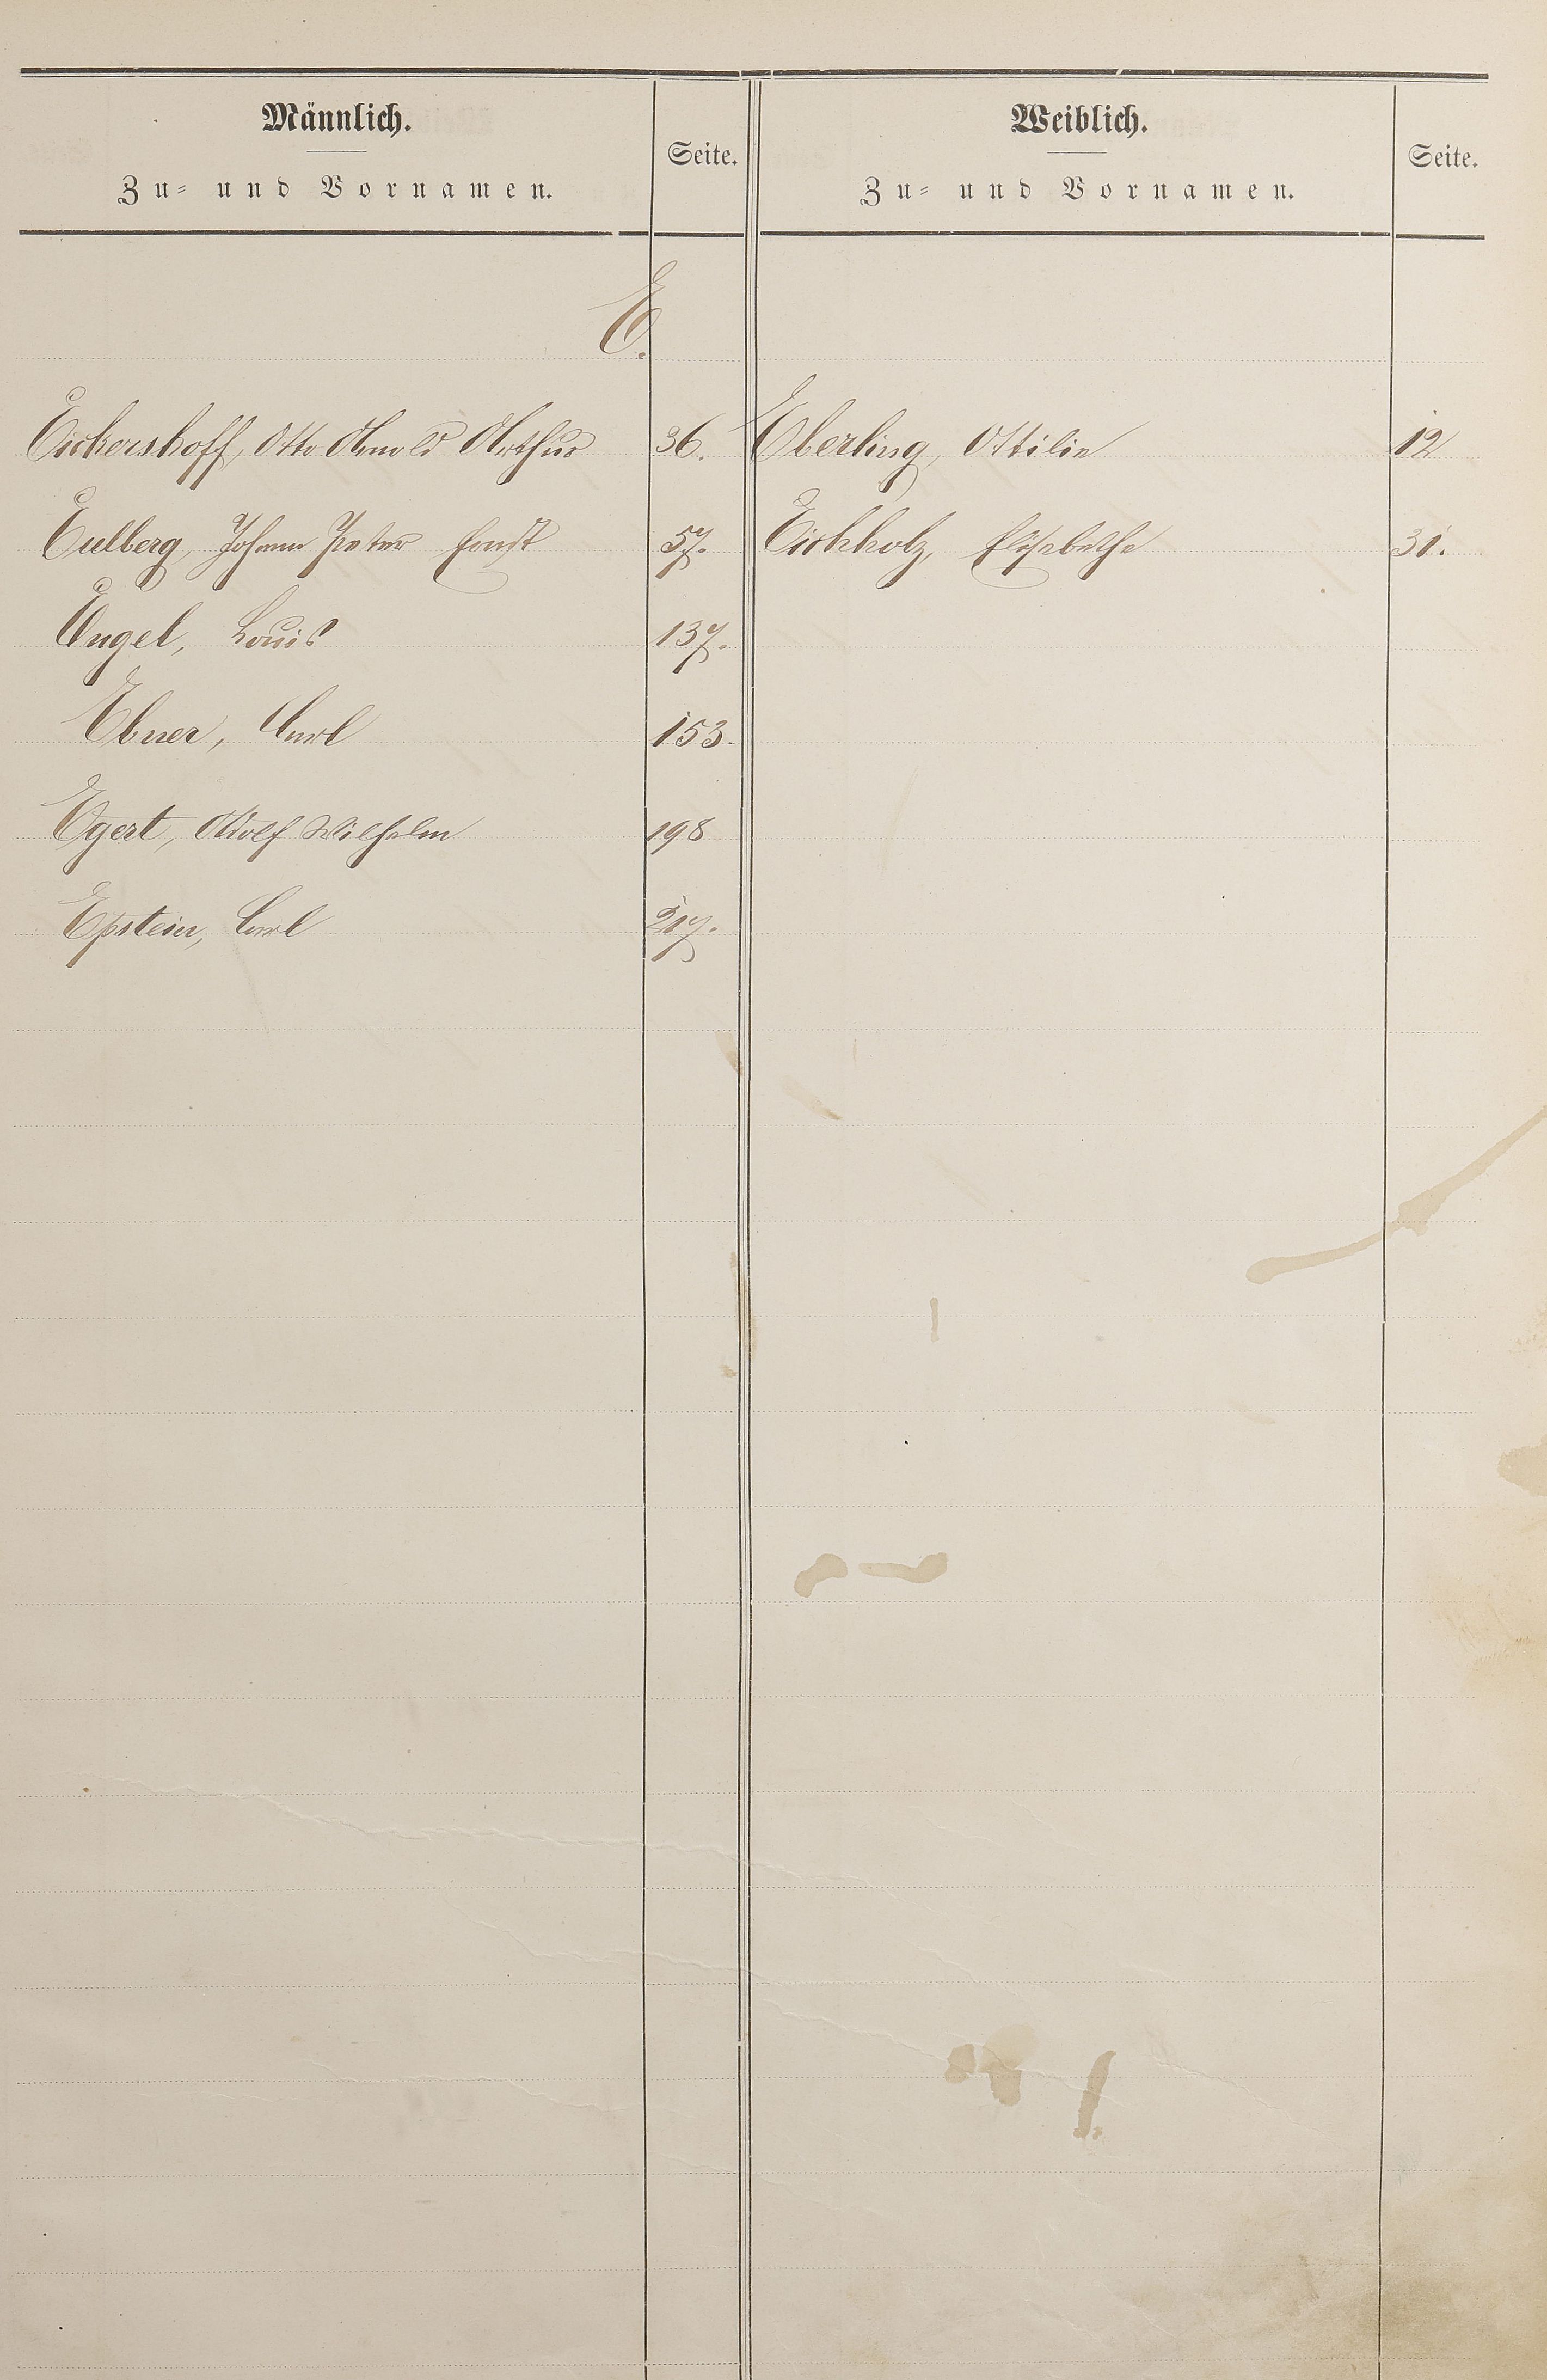 Männlich.
Zu- und Vornamen.
Seite.
Weiblich.
Zu- und Vornamen.
Seite.
E.
Eickershoff, Otto Arnold Arthur 36.
Eulberg, Johann Peter Ernst 57.
Engel, Louis 137.
Ebner, Carl 153.
Egert, Adolf Wilhelm 198
Epstein, Carl 217.
Eberling, Ottilie 12
Eichholz, Elisabetha 31.